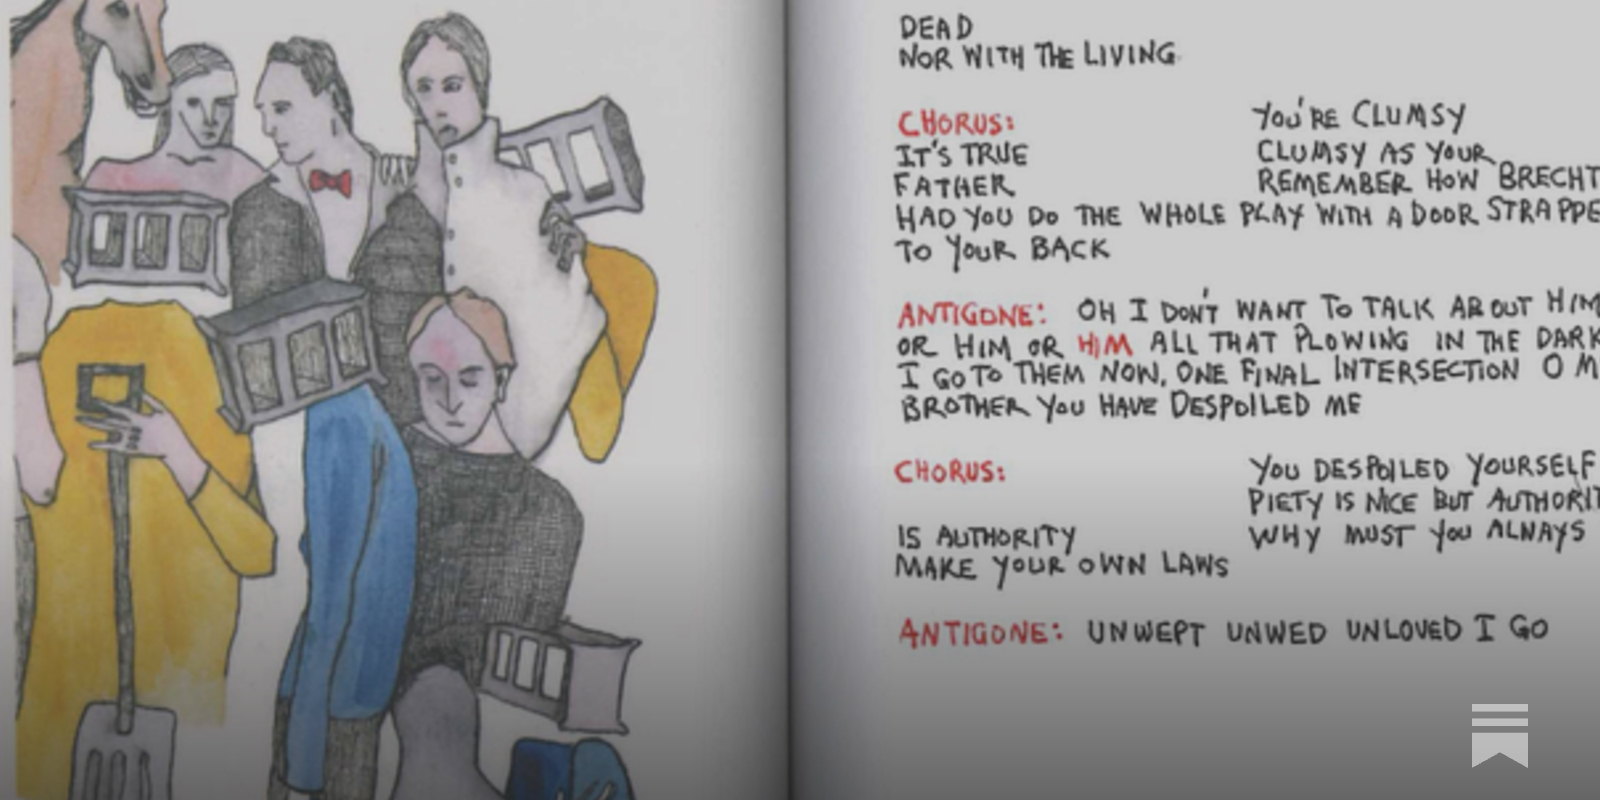 DEAD
NOR WITH THE LIVING
CHORUS: YOU'RE CLUMSY
IT'S TRUE CLUMSY AS YOUR
FATHER REMEMBER HOW BRECHT
HAD YOU DO THE WHOLE PLAY WITH A DOOR STRAPPE
TO YOUR BACK
ANTIGONE: OH I DON'T WANT TO TALK ABOUT HIM
OR HIM OR HIM ALL THAT PLOWING IN THE DARK
I GO TO THEM NOW, ONE FINAL INTERSECTION O M
BROTHER YOU HAVE DESPOILED ME
CHORUS: YOU DESPOILED YOURSELF
PIETY IS NICE BUT AUTHORIT
IS AUTHORITY WHY MUST YOU ALWAYS
MAKE YOUR OWN LAWS
ANTIGONE: UNWEPT UNWED UNLOVED I GO